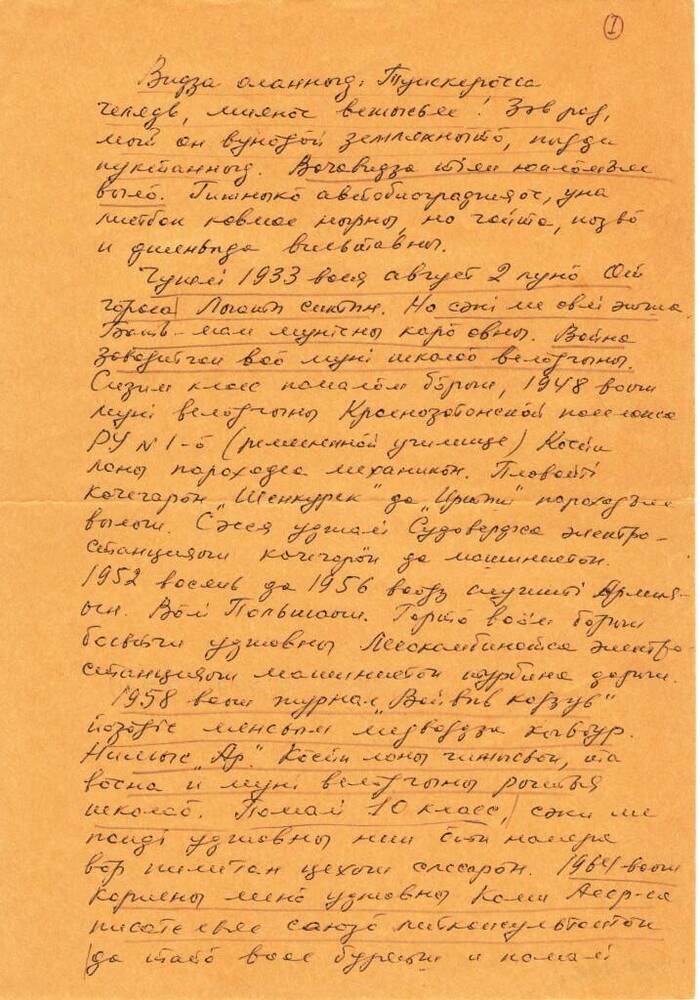 I
Видза оланныд, Тускеросса
челядь, миянӧс велӧдысьяс! Зэв рад,
мый он вунӧдӧй землякнытӧ, пыдди
пуктанныд. Вочавидза тіян юалӧмъяс
вылӧ. Гижныкӧ автобиография ӧс, уна
листбок ковмас нырны, но чайта, позьӧ
и дженьыда висьтавны.
Чужлі 1933 вося август 2 лунӧ Сыктыв
Лопыти сиктын. Но сэні ме овлі этша.
Бать-мам мунісны карӧ овны. Война
заводитчӧм воӧ муні школаӧ велӧдчыны.
Сизим класс помалӧм бӧрын, 1948 воын
муні велӧдчыны Краснозатонской поселокса
РУ №1-ӧ (ремесленнӧй училище) Косйи
лоны пароходса механикӧн. Плавайті
кочегарӧн "Шенкурск" да "Иртыш" пароходъяс
вылын. Сэсся уджалі Судоверфса электро-
станцияын кочегарӧн да машинистӧн.
1952 восянь да 1956 воӧдз служиті Армия-
ын. Вӧлі Польшаын. Гортӧ воӧм бӧрын
бӧсьтчи уджавны Лесокомбинатса электро-
станцияын машинистӧн турбина дорын.
1958 воын журнал "Войвыв кодзув"
йӧзӧдіс менсьым медводдза кывбур.
Нимыс "Ар". Косйи лоны гижысьӧн, та
вӧсна и муні велӧдчыны рытъя
школаӧ. Помалі 10 класс, сэки ме
пондi уджавны нин сійӧ комбинатса
вӧр пилитан цехын слесарӧн. 1964 воын
корисны менӧ уджавны Коми Асср-са
писательяс союзӧ литконсультантӧн
да татӧ воӧс бурысь и помалі